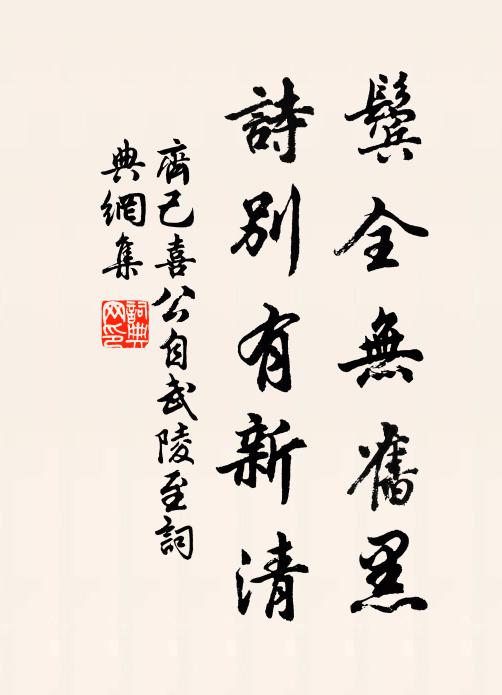 鬓全無舊黑
詩別有新清
齊己喜公自武陵至詞
典網集
詞典
网印